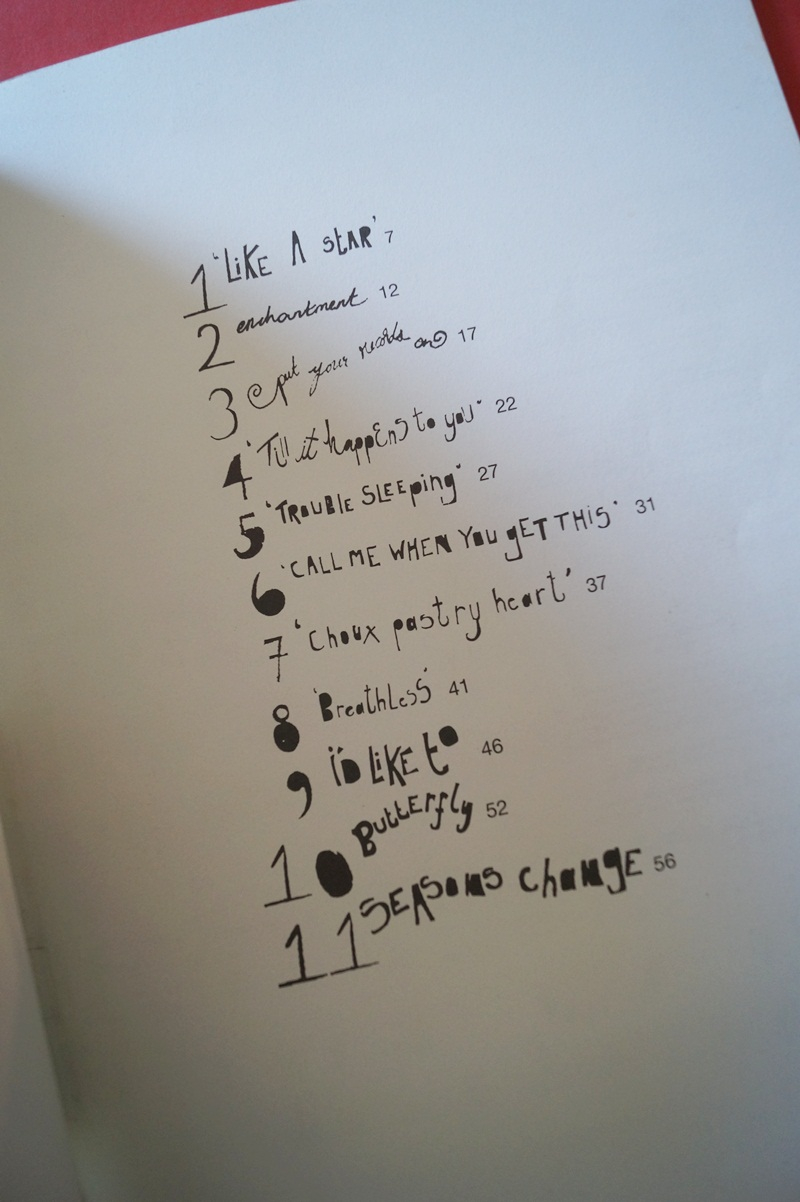 1 'LiKE A stAR' 7
2 enchantment 12
3 put your records on 17
4 'Till it happEnS to you' 22
5 'TROUBLE SLEEping' 27
6 'CALL ME WHEN YOU gET THiS' 31
7 'Choux pastry heart' 37
8 'BreathLesS' 41
9 i'D LiKE to 46
10 ButtERfly 52
11 SEASOnS ChangE 56